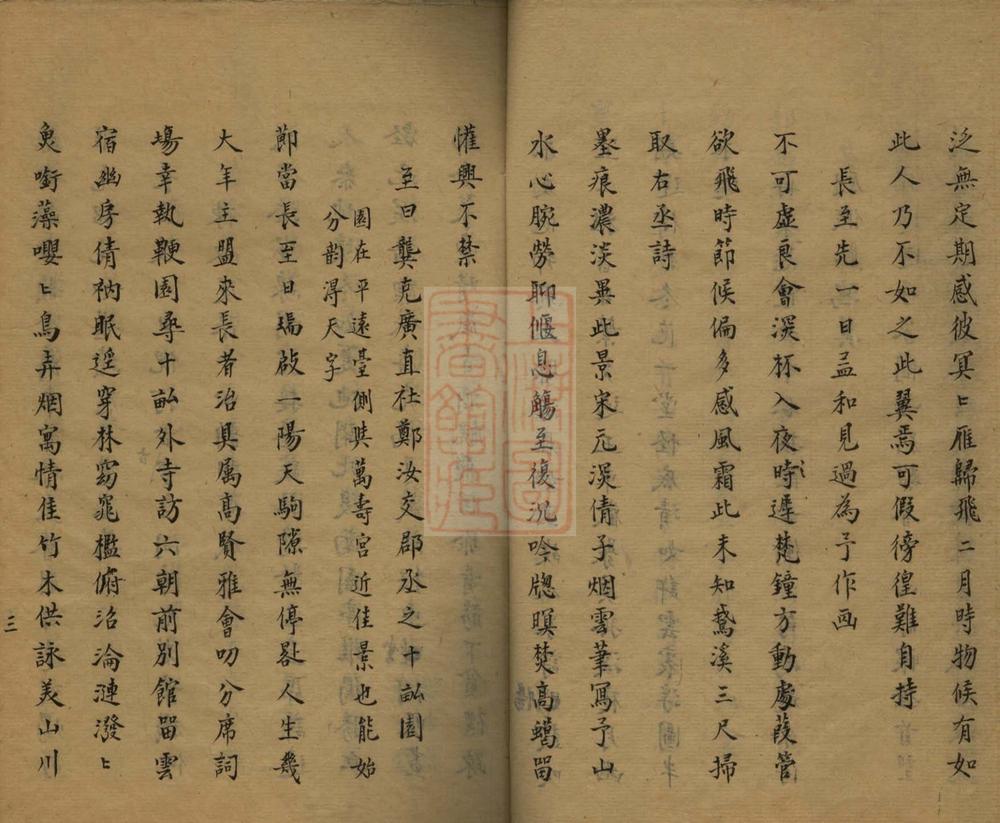 泛無定期感彼冥〻雁歸飛二月時物候有如
此人乃不如之此翼焉可假徬徨難自持
長至先一日孟和見過為予作画
不可虛良會深杯入夜時遲梵鐘方動處葭管
欲飛時節候偏多感風霜此未知鵞溪三尺掃
取右丞詩
墨痕濃淡異此景宋元深倩子烟雲筆寫予山
水心腕勞聊偃息觴至復況吟牕暝焚高蠟留
懽興不禁
至日龔克廣直社鄭汝交郡丞之十畝園
園在平遠臺側與萬壽宮近佳景也能始
分韵得天字
節當長至日瑞啟一陽天駒隙無停晷人生幾
大年主盟來長者治具属高賢雅會叨分席詞
塲幸執鞭園尋十畝外寺訪六朝前別館留雲
宿幽房倩衲眠遥穿林窈窕檻俯沼淪漣潑〻
魚啣藻嚶〻鳥弄烟寓情佳竹木供詠美山川
三